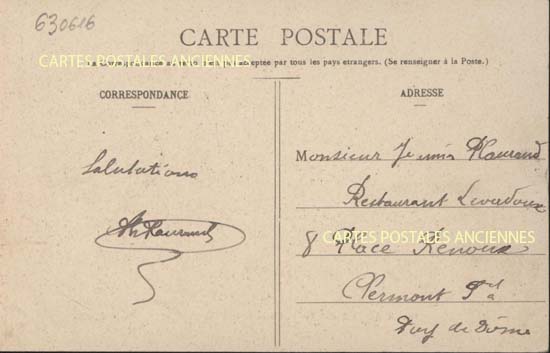 630616
CARTE POSTALE
CARTES POSTALES ANCIENNES
La Correspondance au recto n'est pas acceptée par tous les pays etrangers. (Se renseigner à la Poste.)
CORRESPONDANCE
Salutations
ADRESSE
Monsieur
Restaurant
8 Place Renoux
CARTES POSTALES ANCIENNES
Clermont Fd
Puy de Dôme